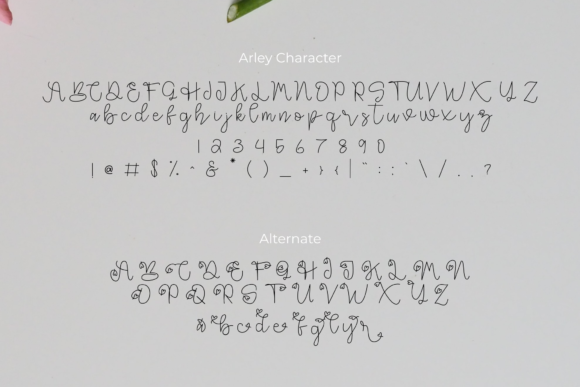 Arley Character
A B C D E F G H I J K L M N O P R S T U V W X Y Z
a b c d e f g h i j k l m n o p q r s t u v w x y z
1 2 3 4 5 6 7 8 9 0
| @ # $ % ^ & * ( ) _ + } { | " : : ` \ / . . ?
Alternate
A B C D E F G H I J K L M N
O P Q R S T U V W X Y Z
a b c d e f g l y r